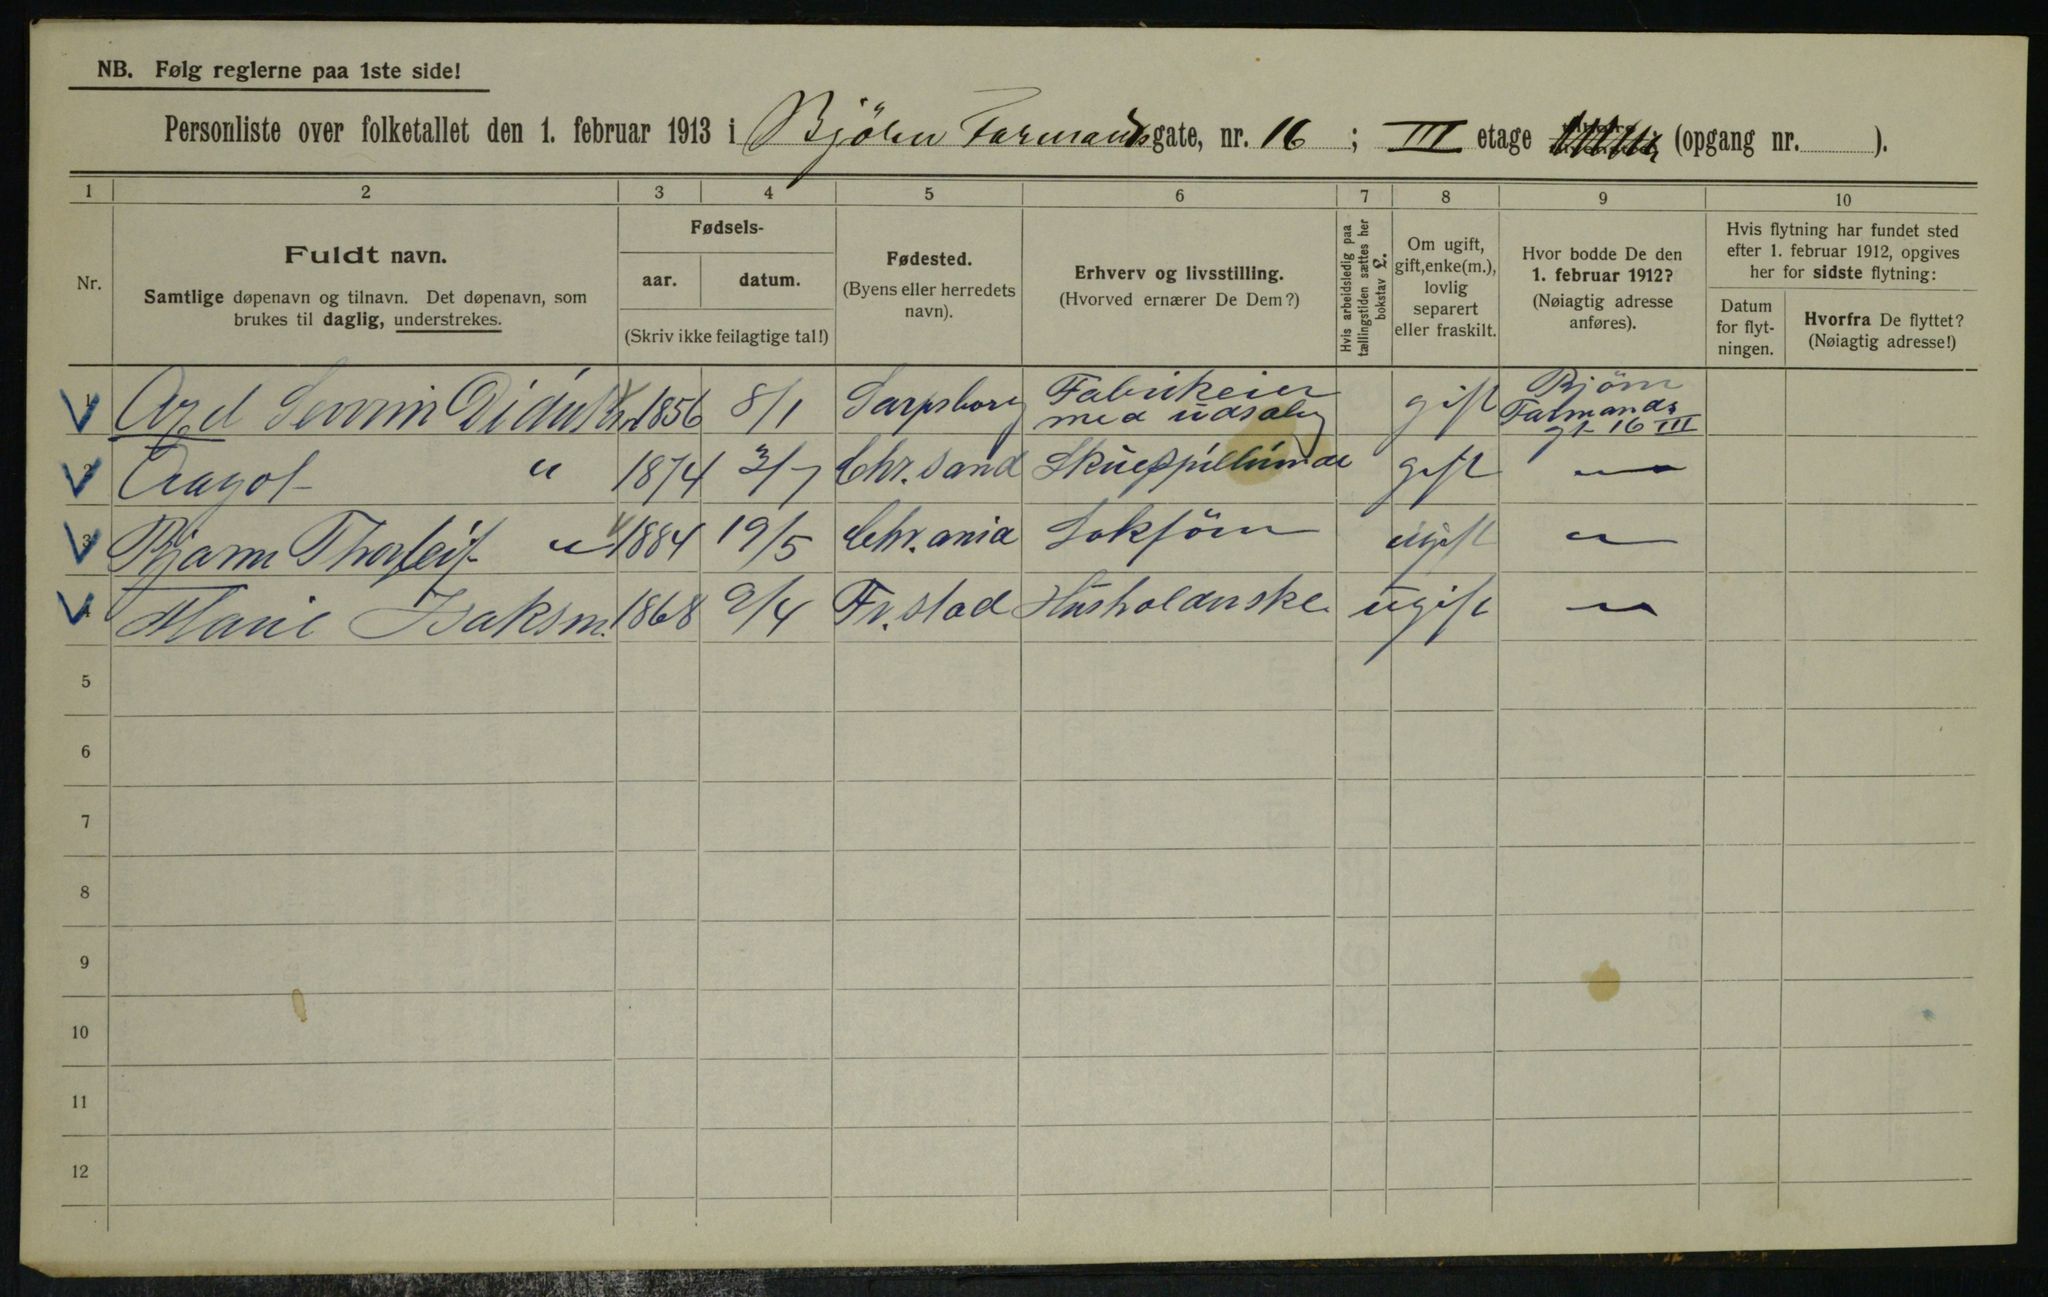 NB. Følg reglerne paa 1ste side!
Personliste over folketallet den 1. februar 1913 i Bjørn Farmandsgate, nr. 16 ; III etage (opgang nr. ).
1 2 3 4 5 6 7 8 9 10
Nr.
Fuldt navn.
Samtlige døpenavn og tilnavn. Det døpenavn, som
brukes til daglig, understrekes.
Fødsels-
aar. datum.
(Skriv ikke feilagtige tal!)
Fødested.
(Byens eller herredets
navn).
Erhverv og livsstilling.
(Hvorved ernærer De Dem?)
Hvis arbeidsledig paa
tællingstiden sættes her
bokstav L.
Om ugift,
gift, enke(m.),
lovlig
separert
eller fraskilt.
Hvor bodde De den
1. februar 1912?
(Nøiagtig adresse
anføres).
Hvis flytning har fundet sted
efter 1. februar 1912, opgives
her for sidste flytning:
Datum
for flyt-
ningen.
Hvorfra De flyttet?
(Nøiagtig adresse!)
1 Axel 1856 8/1 Sarpsborg Fabrikeier med udsalg gift Bjørn Farmands gt 16 III
2 Aagot " 1874 3/7 Chr.sand gift "
3 Bjarne Thorleif " 1884 19/5 Chr.ania ugift "
4 Marie Isaksen 1868 9/4 Fr.stad Husholderske ugift "
5
6
7
8
9
10
11
12